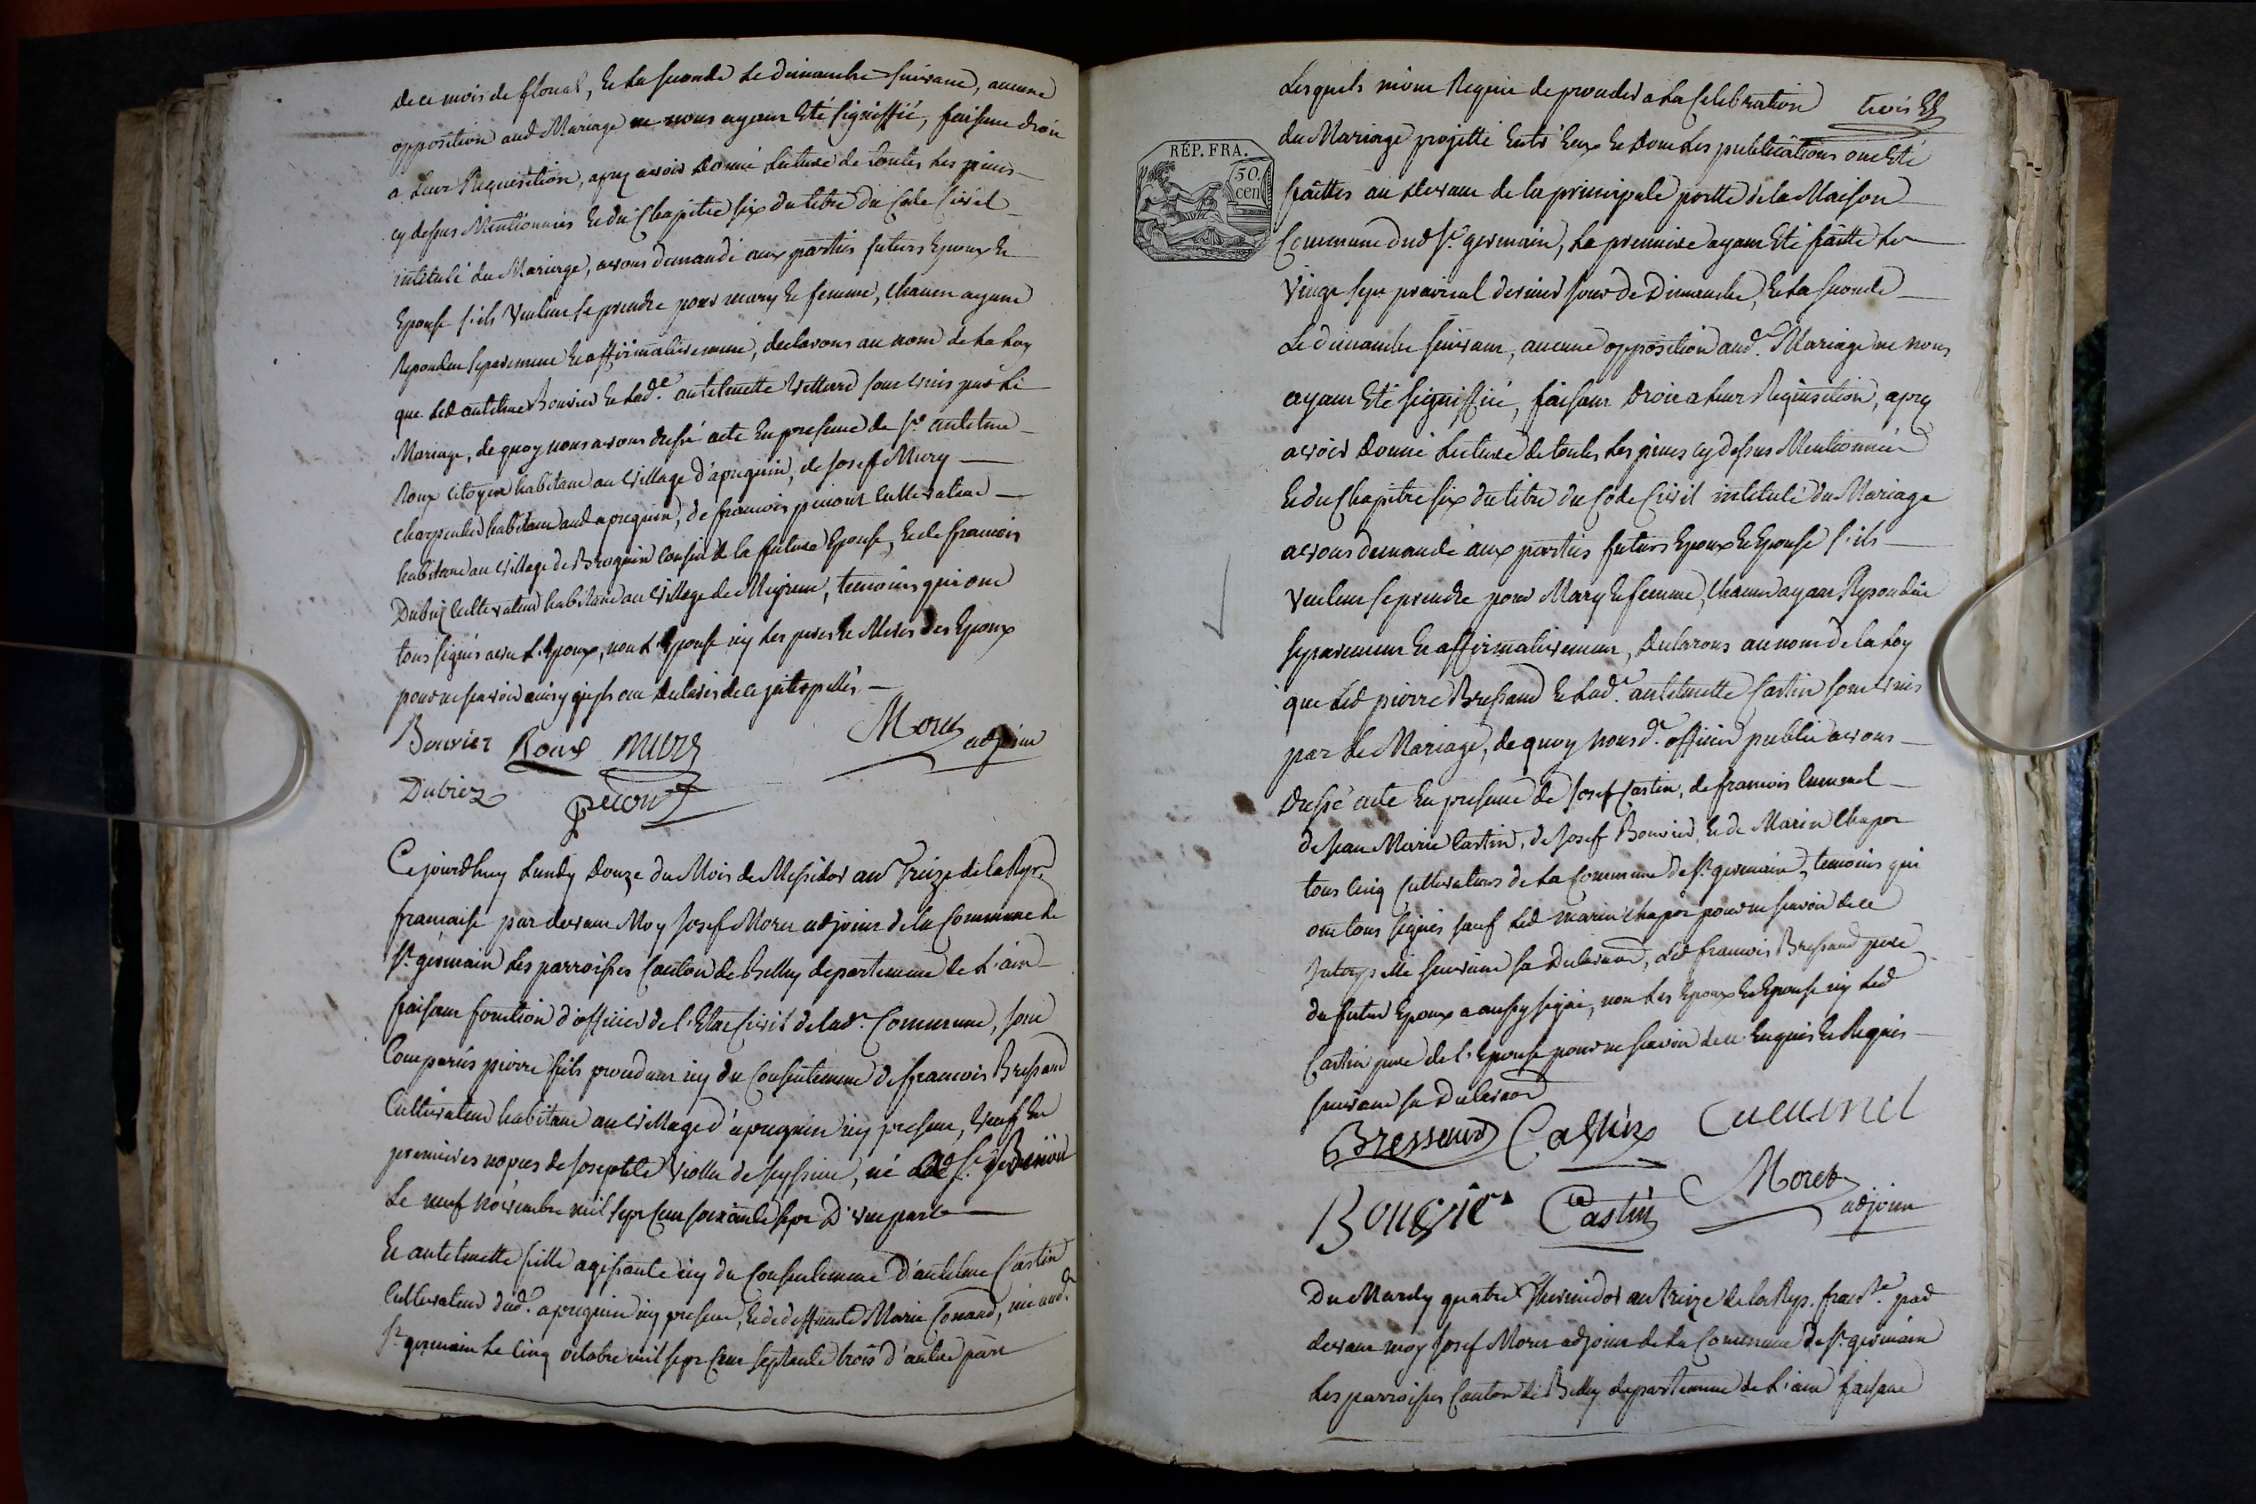 de ce mois de floreal, Et La seconde Le dimanche suivant, aucune
opposition aud Mariage ne nous ayant Eté signiffié, faisant droit
a Leur Requisition, aprez avoir donné Lecture de toutes Les pieces
cy dessus Mentionnées Et du Chapitre six du titre du Code Civil
intitulé du Mariage, avons demandé aux parties futurs Epoux Et
Epouse s'ils veulent se prendre pour mary Et femme, chacun ayant
Repondu separement Et affirmativement, declarons au nom de La Loy
que Led antelme Bouvier Et Lad.e antelmette vettard sont unis par Le
Mariage, de quoy nous avons dressé acte En presence de Sr antelme
Roux citoyen habitant au village d'apregnin, de Josef Mury
charpentier habitant aud apregnin, de francois picout cultivateur
habitant au village de Bregnin cousin de la future Epouse, Et de francois
Dubiez cultivateur habitant au village de Meyrieu, temoins qui ont
tous signés avec L'Epoux, non L'Epouse ny Les peres Et Meres des Epoux
pour ne scavoir ainsy qu'ils ont declarés de ce interpellés
Bouvier Roux Mury Moret adjoint
Dubiez picout
Ce jourdhuy Lundy douze du Mois de Messidor an treize de la Rep.
francaise par devant Moy Josef Moret adjoint de la Commune de
St germain Les parroisses Canton de Belley departement de L'ain
faisant fonction d'officier de l'Etat Civil de lad.e Commune, sont
Comparus pierre fils procedant icy du Consentement de francois Bressand
Cultivateur habitant au village d'apregnin icy present, veuf En
premieres nopces de Josephte viollet de seyssieu, né aud St germain
Le neuf novembre mil sept cent soixante sept d'une part
Et antelmette fille agissante icy du Consentement d'antelme Castin
Cultivateur dud.t apregnin icy present, Et de deffunte Marie Conand, née aud.t
St germain Le cinq octobre mil sept cent septante trois d'autre part
Lesquels m'ont Requis de proceder a La Celebration trois
du Mariage projetté Entr'Eux Et dont Les publications ont Eté
faittes au devant de la principale portte de la Maison
RÉP. FRA.
50.
cen
Commune dud St germain, La premiere ayant Eté faitte Le
vingt sept prairial dernier jour de Dimanche, Et La seconde
Le dimanche suivant, aucune opposition aud.t Mariage ne nous
ayant Eté signiffiée, faisant droit a Leur Requisition, aprez
avoir donné Lecture de toutes Les pieces cy dessus Mentionnées
Et du Chapitre six du titre du Code Civil intitulé du Mariage
avons demandé aux parties futurs Epoux Et Epouse s'ils
veulent se prendre pour Mary Et femme, chacun ayant Repondu
separement Et affirmativement, declarons au nom de la Loy
que Led pierre Bressand Et Lad.e antelmette Castin sont unis
par Le Mariage, de quoy nous d.t officier public avons
dressé acte En presence de Josef Castin, de francois Cueunel
de Jean Marie Castin, de Josef Bouvier, Et de Marin Chapot
tous Cinq Cultivateurs de La Commune de St germain, temoins qui
ont tous signés sauf Led Marin Chapot pour ne scavoir de ce
Interpellé suivant sa declaration, Led francois Bressand pere
du futur Epoux a aussy signé, non Les Epoux Et Epouse ny Led
Castin pere de l'Epouse pour ne scavoir de ce Enquis Et Requis
suivant sa declaration
Bressand Castin Cueunel
Bouvier Castin Moret adjoint
Du Mardy quatre Thermidor an treize de la Rep. franc.se par
devant moy Josef Moret adjoint de La Commune de St germain
Les parroisses Canton de Belley departement de L'ain faisant